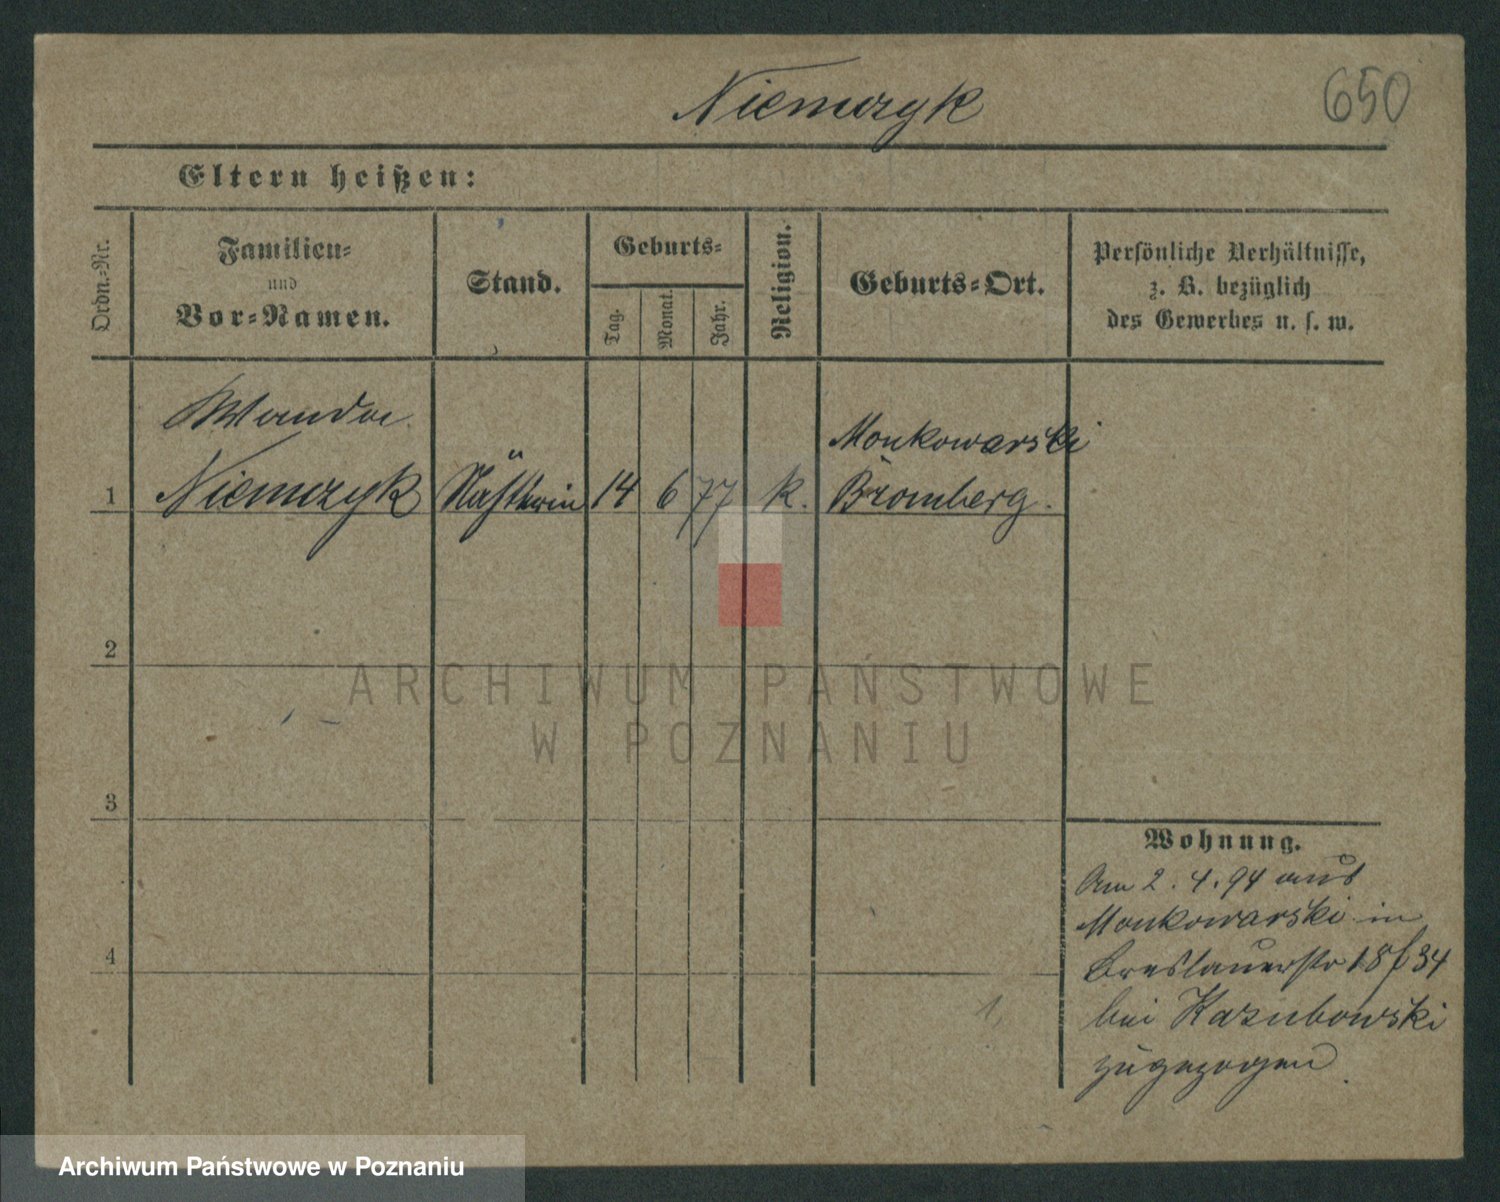 Niemczyk
650
Eltern heißen:
Ordn.-Nr.
Familien-
und
Vor-Namen.
Stand.
Geburts-
Tag.
Monat.
Jahr.
Religion.
Geburts-Ort.
Persönliche Verhältnisse,
z. B. bezüglich
des Gewerbes u. s. w.
Wanda
Niemczyk
1
Nähterin
14
6
77
k.
Monkowarski
Bromberg.
2
3
4
Wohnung.
Am 2. 4. 94 aus
Monkowarski in
Breslauerstr 18/34
bei Kasubowski
zugezogen
1,
ARCHIWUM PAŃSTWOWE
W POZNANIU
Archiwum Państwowe w Poznaniu